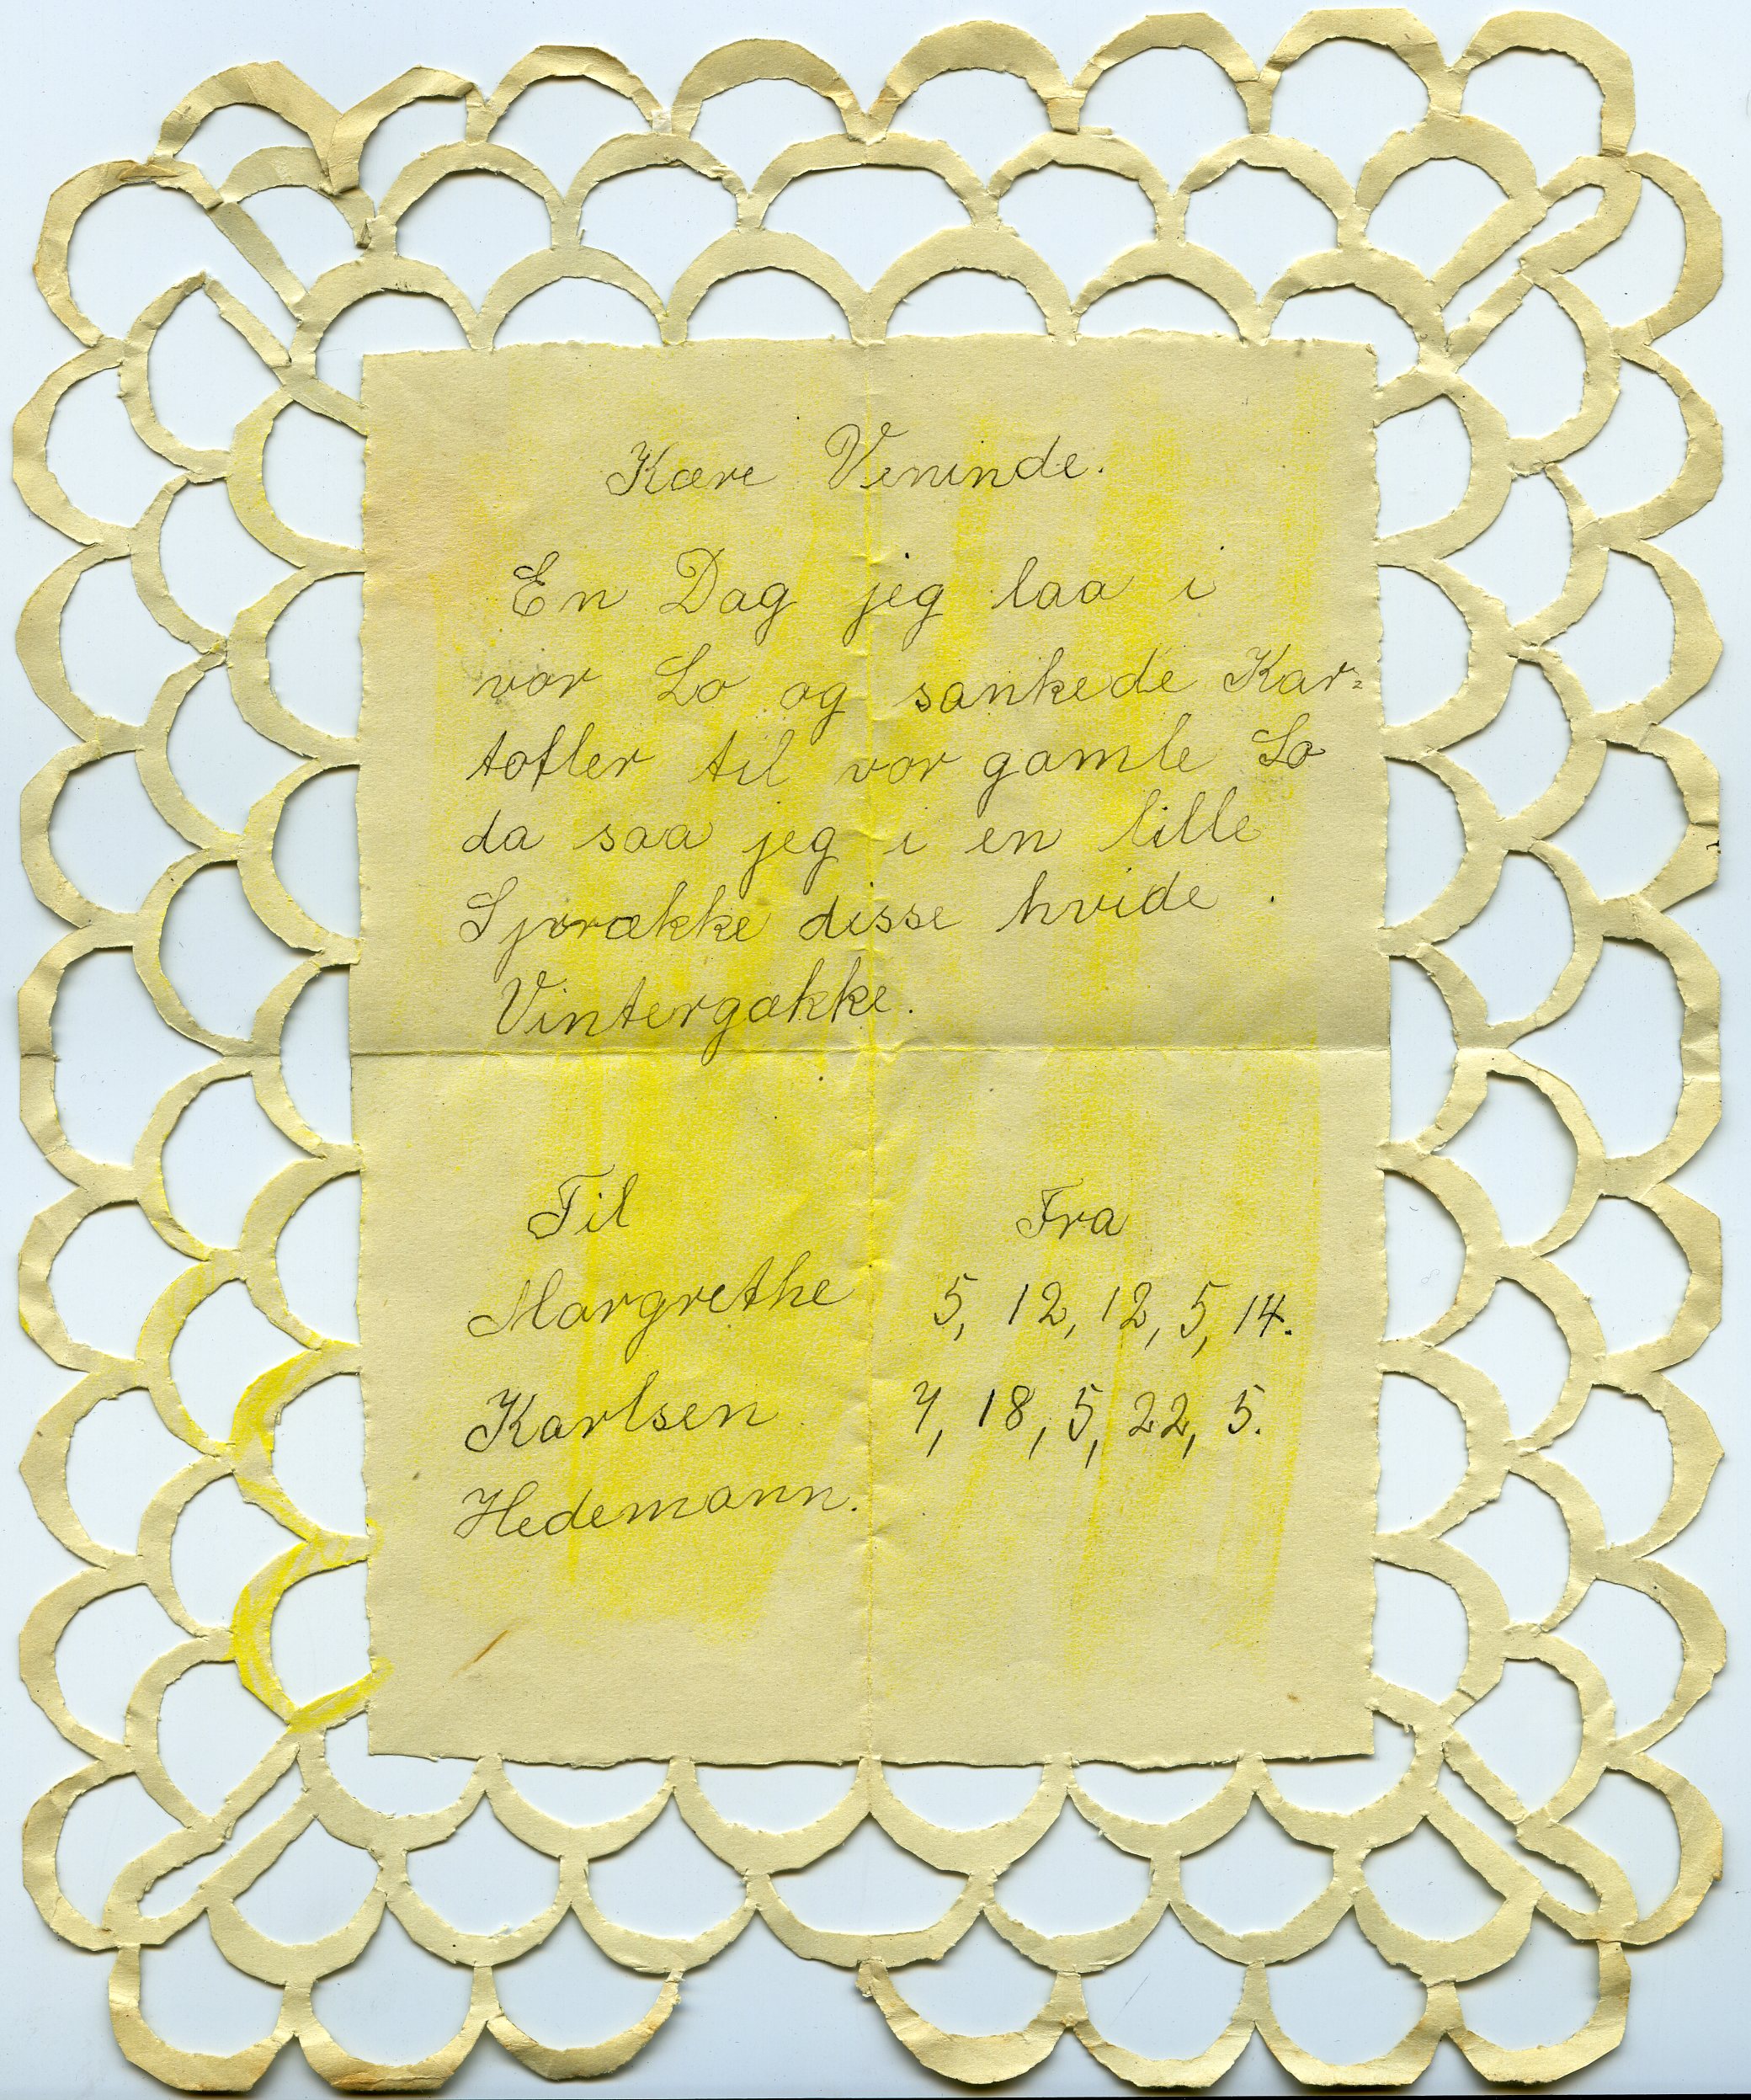 Kære Veninde.
En Dag jeg laa i
vor Lo og sankede Kar-
tofler til vor gamle So
da saa jeg i en lille
Sprække disse hvide.
Vintergække.
Til
Margrethe
Karlsen
Hedemann.
Fra
5, 12, 12, 5, 14.
7, 18, 5, 22, 5.